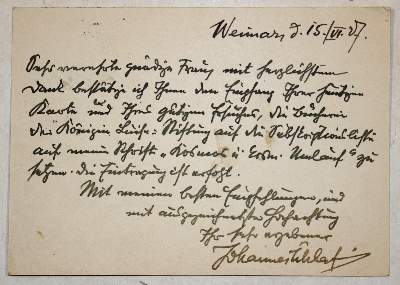 Weimar, d. 15./VI. 27.
Sehr verehrte gnädige Frau, mit herzlichstem
Dank bestätige ich Ihnen den Empfang Ihrer heutigen
Karte und Ihres gütigen Ersuchens, die Bücherei
der Königin Luise-Stiftung auf die Subskriptionsliste
auf meine Schrift „Kosmos u. kosm. Umlauf“ zu
setzen. Die Eintragung ist erfolgt.
Mit meinen besten Empfehlungen, und
mit ausgezeichneter Hochachtung
Ihr sehr ergebener
Johannes Schlaf